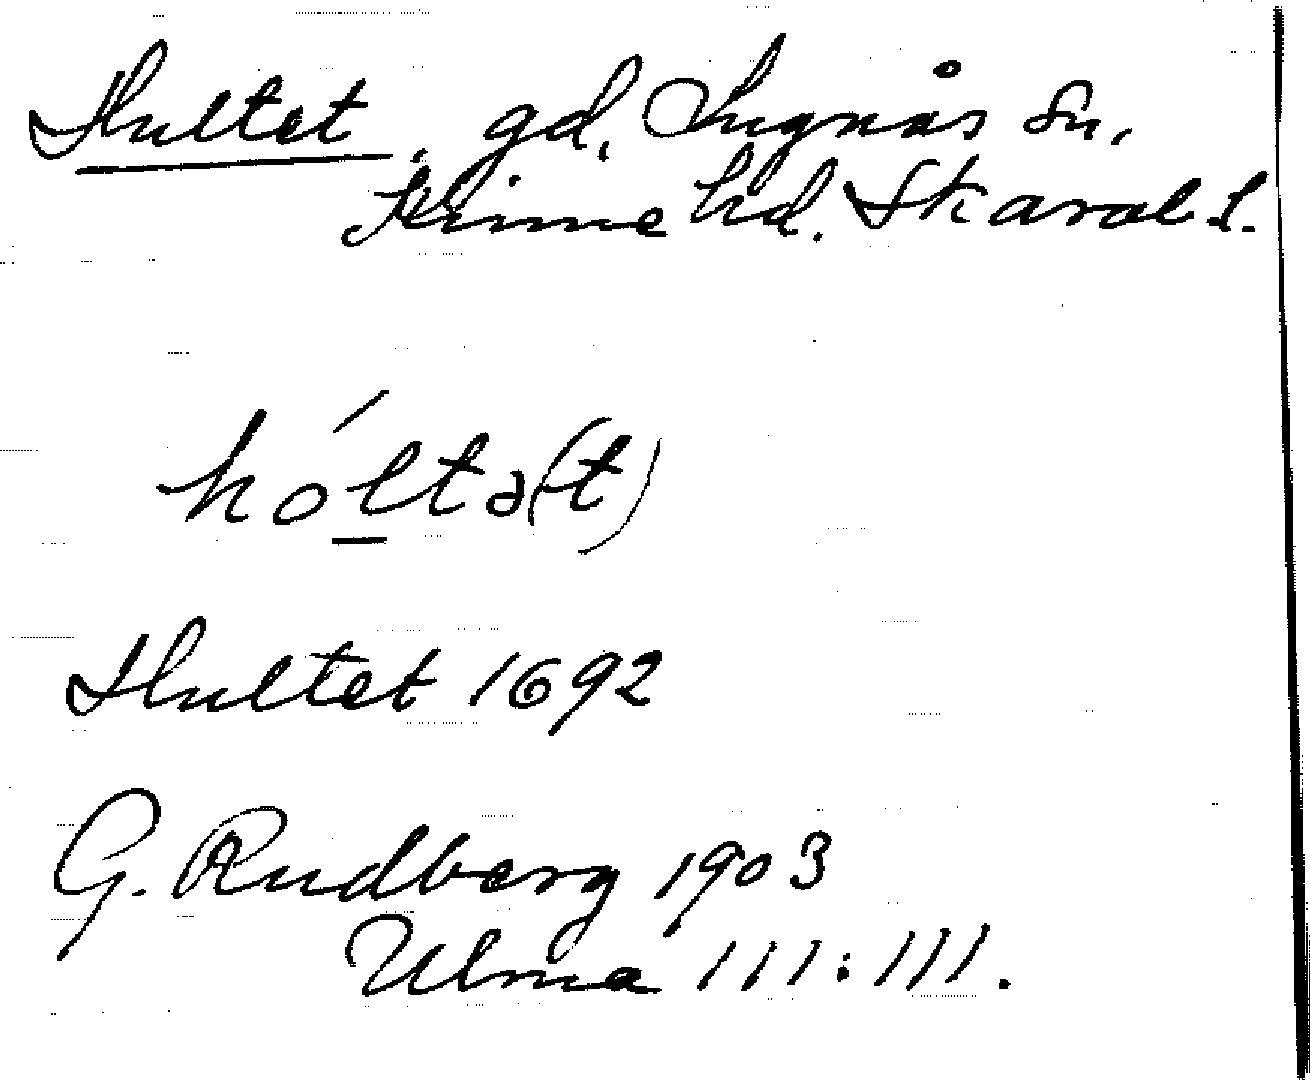 Hultet, gd, Lugnås sn,
Kinne hd. Skarab. l.
hólta(t)
Hultet 1692
G. Rudberg 1903
Ulma 111:111.